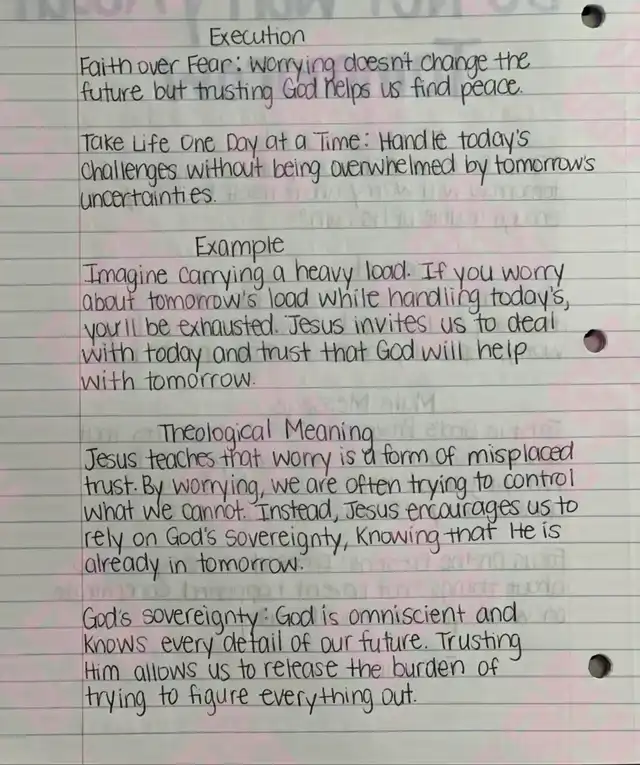 Execution
Faith over Fear: Worrying doesn't change the
future but trusting God helps us find peace.
Take Life One Day at a Time: Handle today's
Challenges without being overwhelmed by tomorrow's
uncertainties.
Example
Imagine carrying a heavy load. If you worry
about tomorrow's load while handling today's,
you'll be exhausted. Jesus invites us to deal
with today and trust that God will help
with tomorrow.
Theological Meaning
Jesus teaches that worry is a form of misplaced
trust. By worrying, we are often trying to control
what we cannot. Instead, Jesus encourages us to
rely on God's sovereignty, knowing that He is
already in tomorrow.
God's sovereignty: God is omniscient and
knows every detail of our future. Trusting
Him allows us to release the burden of
trying to figure everything out.